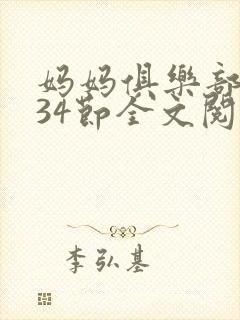 妈妈俱樂部
34節全文閱
李弘基